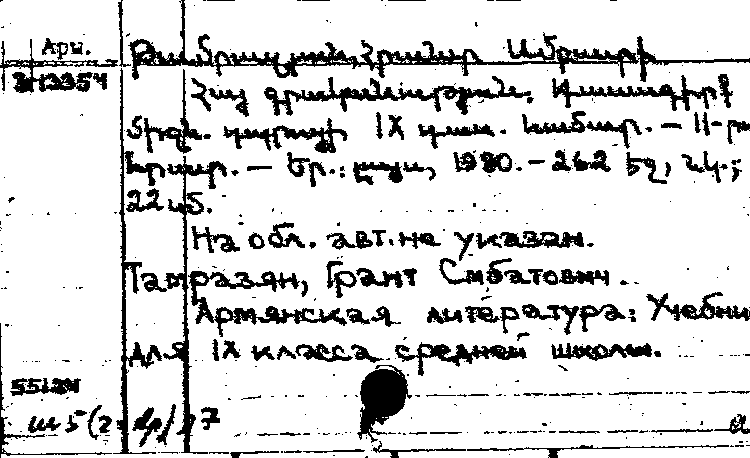 Арм.
Թամրազյան, Հրանտ Սմբատի
Հայ գրականություն. Դասագիրք
միջն. դպրոցի IX դաս. համար. — 11-րդ
հրատ. — Եր.: Լույս, 1980. — 262 էջ, նկ.;
22 սմ.
На обл. авт. не указан.
Тамразян, Грант Смбатович.
Армянская литература: Учебник
для IX класса средней школы.